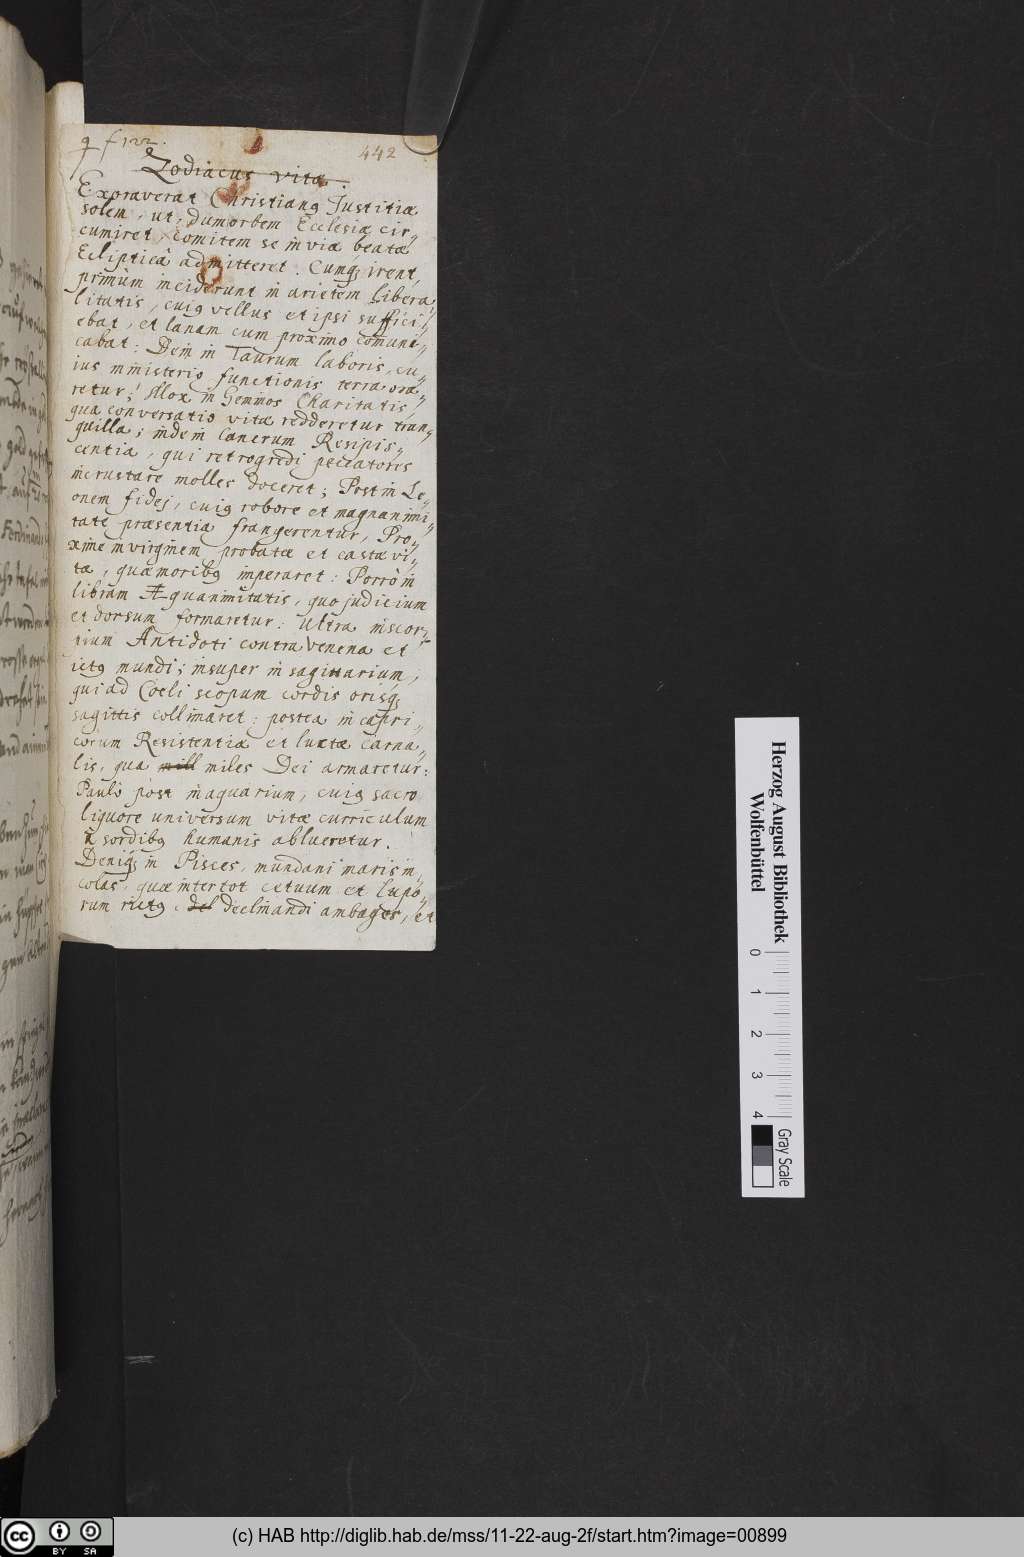 f 122.
442
Zodiacus vitæ.
Exoraverat Christianꝯ Justitiæ
solem, ut, dum orbem Ecclesiæ cir„
cumiret, comitem se in viæ beatæ
Ecliptica admitteret. Cumqꝫ irent,
primùm inciderunt in arietem Libera„
litatis, cuiꝯ vellus et ipsi suffici„
ebat, et lanam cum proximo comuni„
cabat: Dein in Taurum laboris, cu„
ius ministerio functionis terra ora„
retur! Mox in Geminos Charitatis,
qua conversatio vitæ redderetur tran„
quilla; inde in Cancrum Resipis„
centiæ, qui retrogredi peccatores
incrustare molles doceret; Post in Le„
onem fidej, cuiꝯ robore et magnanimi„
tate præsentia frangerentur, Pro„
xime in virginem probatæ et castæ vi„
tæ, quæ moribꝯ imperaret: Porrò in
libram Æquanimitatis, quo judicium
et dorsum formaretur: Ultra in scor„
pium Antidoti contra venena et
ictꝯ mundi; insuper in sagittarium,
qui ad Coeli scopum cordis orisqꝫ
sagittis collimaret: postea in capri„
cornum Resistentiæ et luctæ carna„
lis, qua mill miles Dei armaretur:
Paulò pòst in aquarium, cuiꝯ sacro
liquore universum vitæ curriculum
à sordibꝯ humanis ablueretur.
Deniqꝫ in Pisces, mundani maris in„
colas, quæ inter tot cetuum et lupo„
rum rictꝯ, del declinandi ambages, et
Herzog August Bibliothek
Wolfenbüttel
0 1 2 3 4
Gray Scale
cc BY SA
(c) HAB http://diglib.hab.de/mss/11-22-aug-2f/start.htm?image=00899